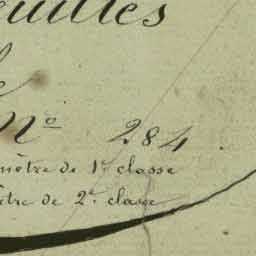 euilles
e
Nº 284.
mètre de 1e classe
ètre de 2e classe